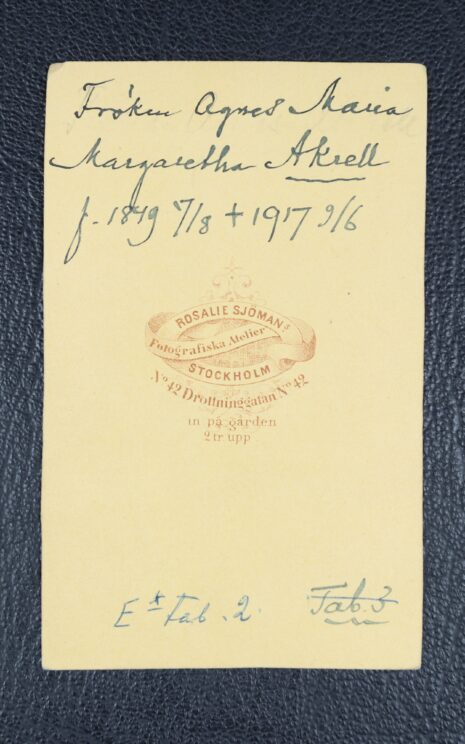 Fröken Agnes Maria
Margaretha Akrell
f. 1849 7/8 + 1917 9/6
ROSALIE SJÖMANS
Fotografiska Atelier
STOCKHOLM
No 42 Drottninggatan No 42
in på gården
2 tr upp
E* Tab. 2. Tab. 3